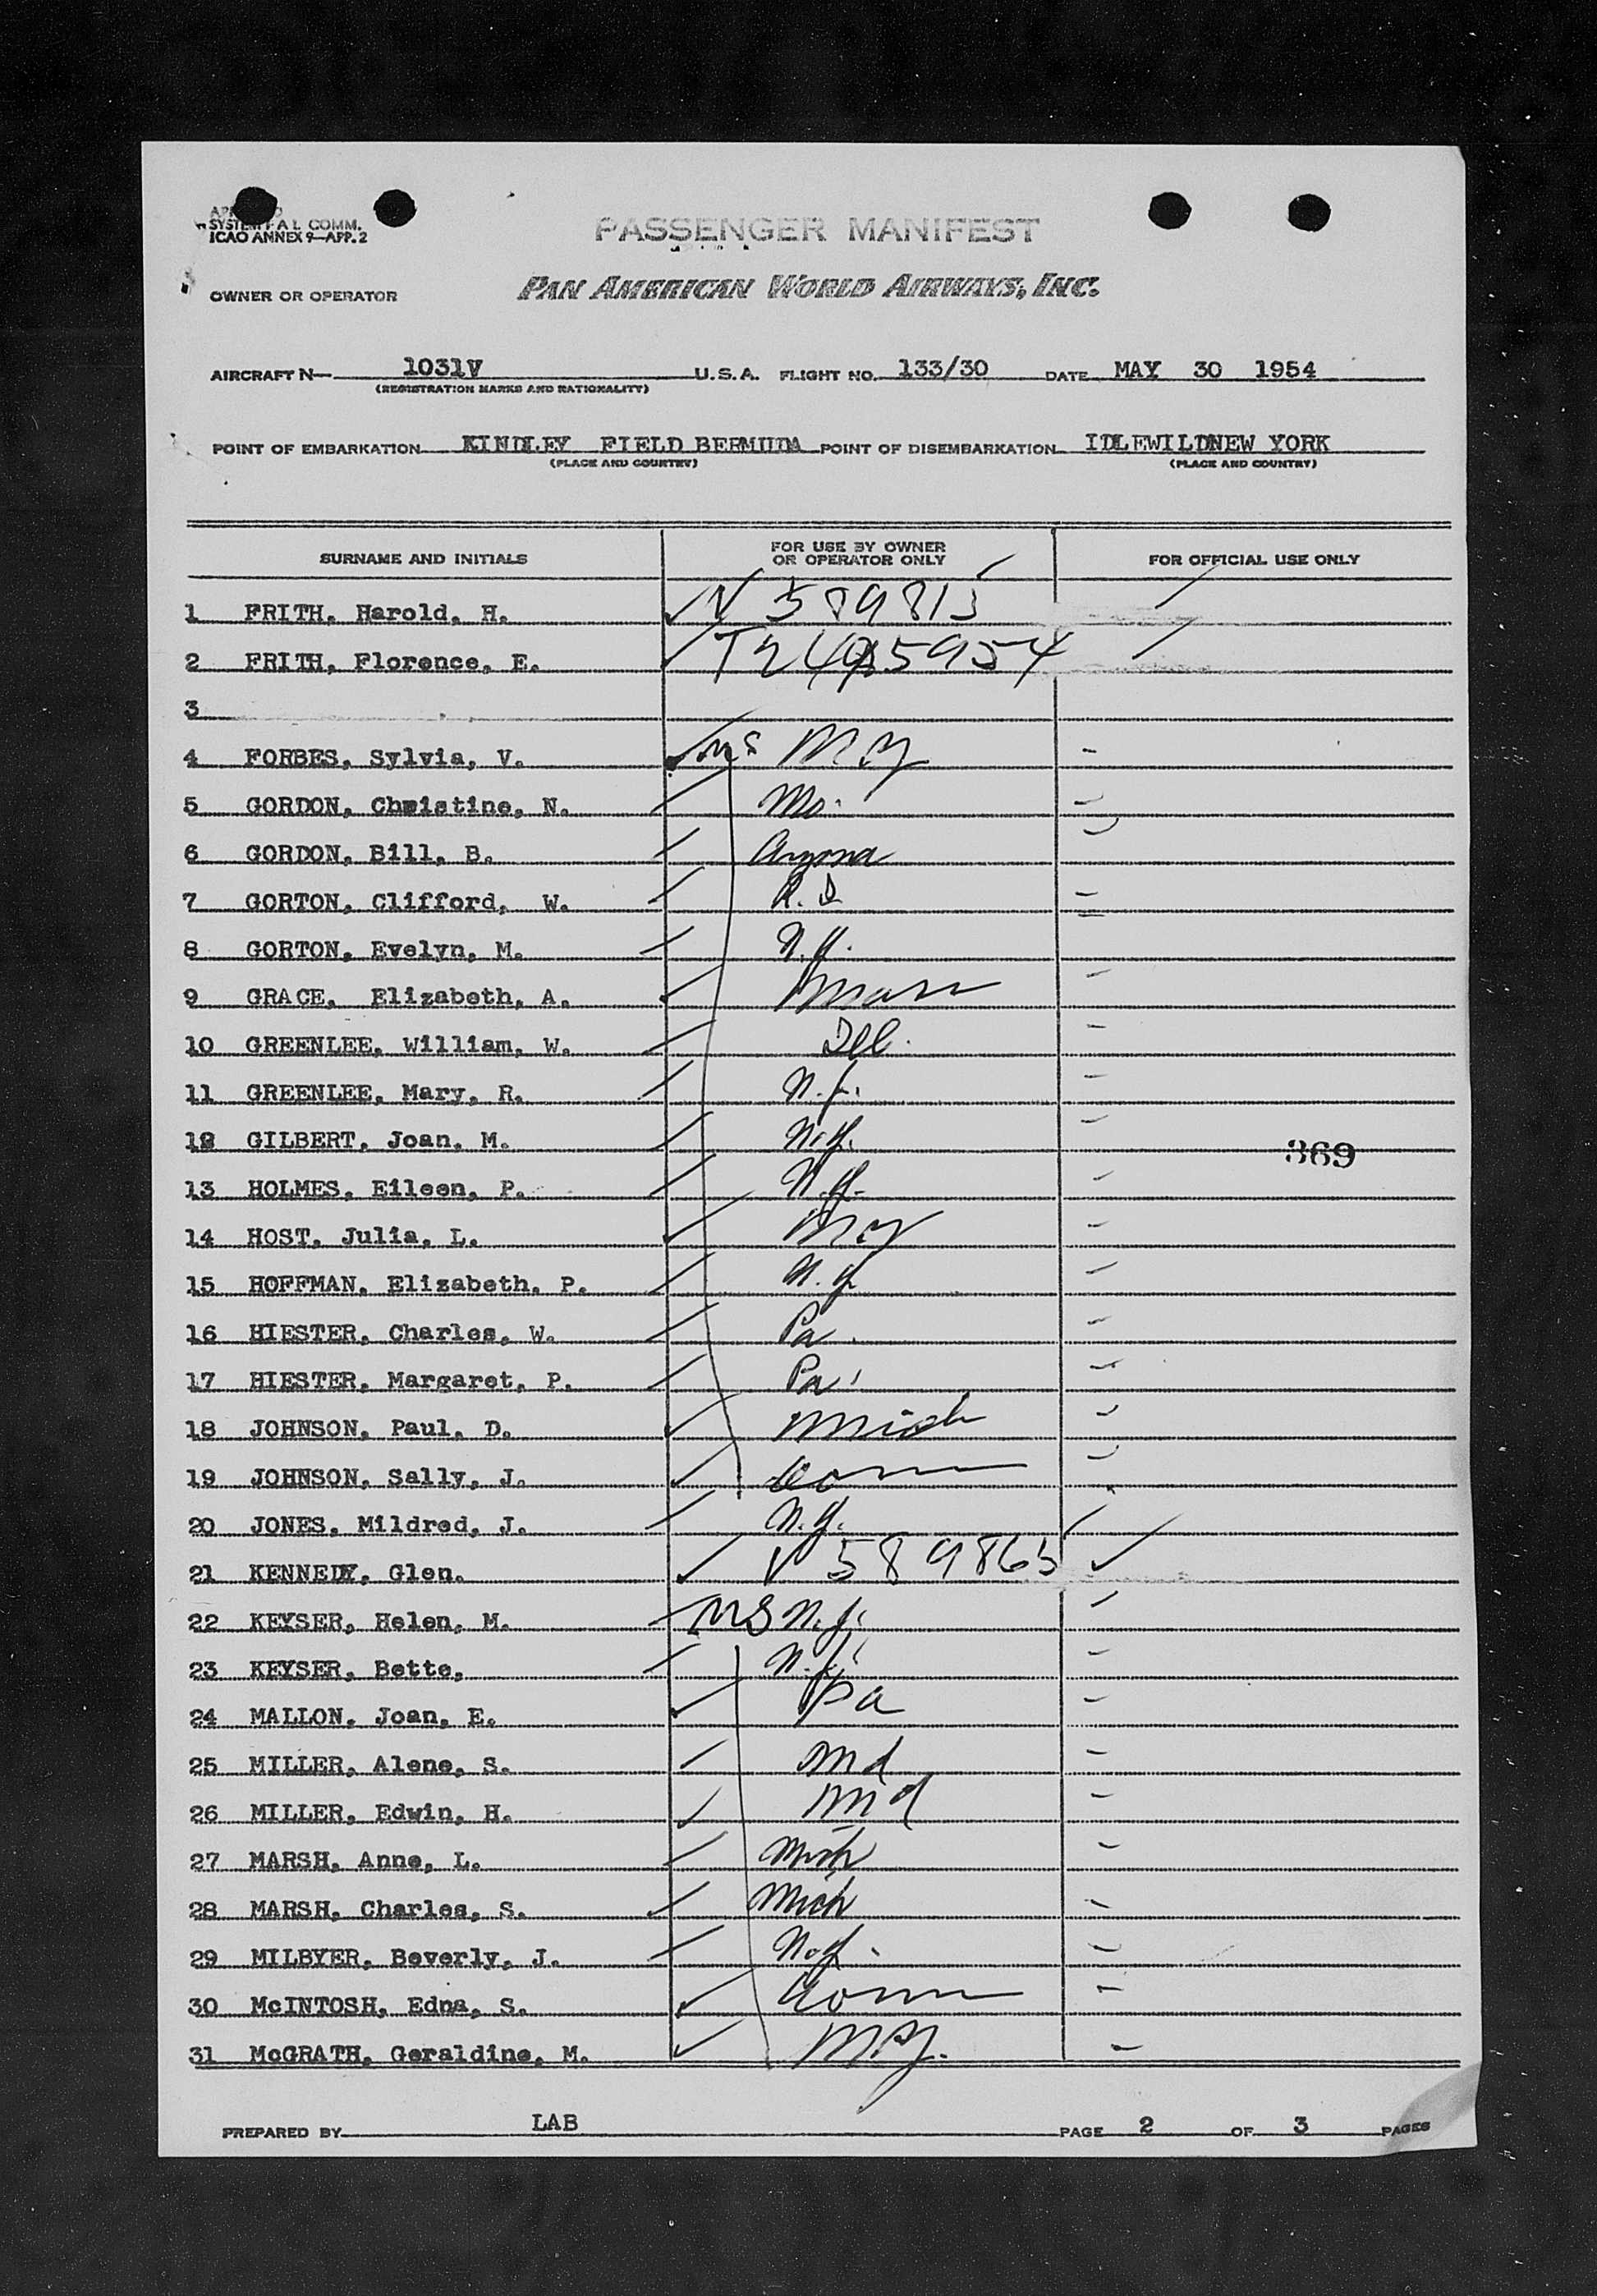 SYSTEM F A L COMM.
ICAO ANNEX 9—APP. 2
PASSENGER MANIFEST
OWNER OR OPERATOR PAN AMERICAN WORLD AIRWAYS, INC.
AIRCRAFT N— 1031V U.S.A. FLIGHT NO. 133/30 DATE MAY 30 1954
(REGISTRATION MARKS AND NATIONALITY)
POINT OF EMBARKATION KINDLEY FIELD BERMUDA POINT OF DISEMBARKATION IDLEWILDNEW YORK
(PLACE AND COUNTRY) (PLACE AND COUNTRY)
SURNAME AND INITIALS FOR USE BY OWNER OR OPERATOR ONLY FOR OFFICIAL USE ONLY
1 FRITH, Harold, H. V 589815
2 FRITH, Florence, E.
3
4 FORBES, Sylvia, V. N.Y
5 GORDON, Christine, N. Mo.
6 GORDON, Bill, B.
7 GORTON, Clifford, W. R.I.
8 GORTON, Evelyn, M. N.Y.
9 GRACE, Elizabeth, A. Mass
10 GREENLEE, William, W. Ill.
11 GREENLEE, Mary, R. N.J.
12 GILBERT, Joan, M. N.Y.
369
13 HOLMES, Eileen, P. N.Y.
14 HOST, Julia, L. N.Y
15 HOFFMAN, Elizabeth, P. N.Y
16 HIESTER, Charles, W. Pa.
17 HIESTER, Margaret, P. Pa.
18 JOHNSON, Paul, D. Mich
19 JOHNSON, Sally, J. Conn
20 JONES, Mildred, J. N.Y.
21 KENNEDY, Glen. V 589865
22 KEYSER, Helen, M. US N.J.
23 KEYSER, Bette, N.J.
24 MALLON, Joan, E. Pa
25 MILLER, Alene, S. Md
26 MILLER, Edwin, H. Md
27 MARSH, Anne, L. Mich
28 MARSH, Charles, S. Mich
29 MILBYER, Beverly, J. N.Y.
30 McINTOSH, Edna, S. Conn
31 McGRATH, Geraldine, M. N.Y.
PREPARED BY LAB PAGE 2 OF 3 PAGES